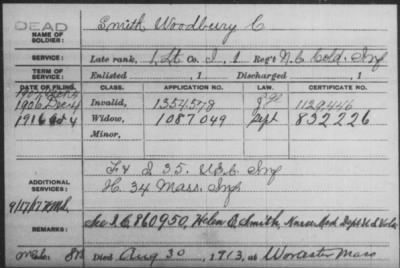 DEAD
NAME OF SOLDIER: Smith Woodbury C
SERVICE: Late rank, 1 Lt Co. I, 1 Reg't N.C. Cold. Inf
TERM OF SERVICE: Enlisted , 1 Discharged , 1
DATE OF FILING. CLASS. APPLICATION NO. CERTIFICATE NO.
1906 Dec 4 Invalid, 1354578 1129446
1916 Oct 4 Widow, 1087049 Sept 832226
Minor,
F & I 35. U.S.C Inf
ADDITIONAL SERVICES: H. 34 Mass. Inf
9/17/17
REMARKS: See I.C 860950, Helen E. Smith, Nurse Med Dept U S Vols
Died Aug 30, 1913, at Worcester Mass